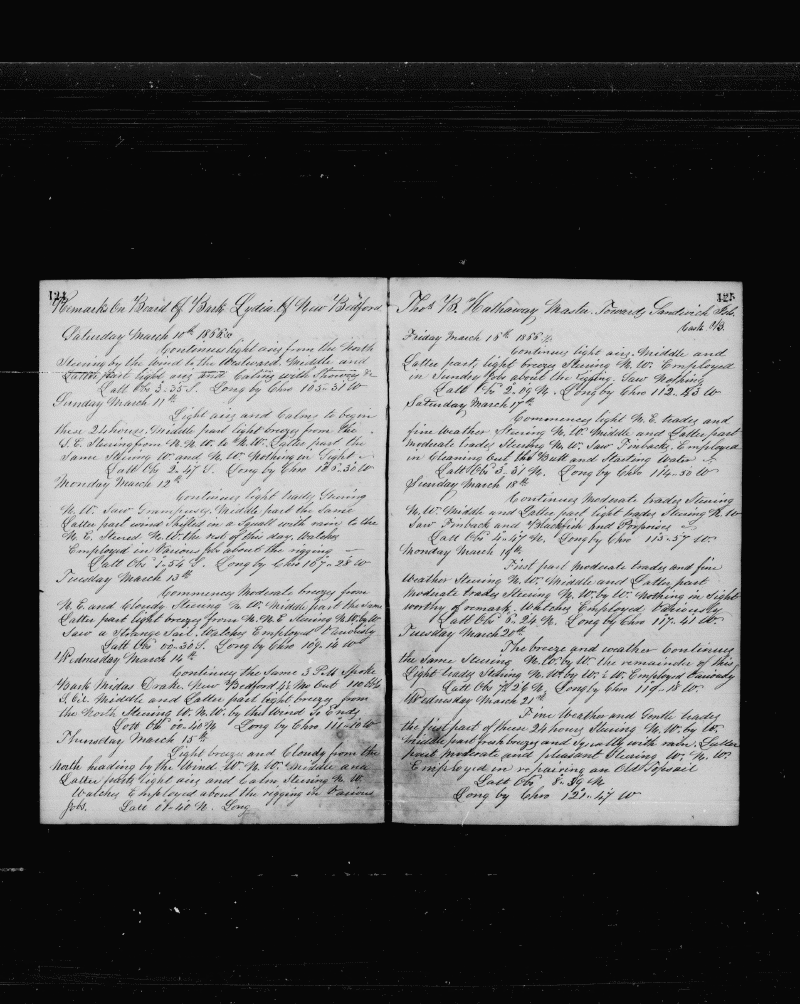 124
Remarks On Board Of Bark Lydia Of New Bedford
Saturday March 10th 1855
Continues light airs from the North
Steering by the wind to the Westward. Middle and
Latter part light airs and Calms with Showers &c
Latt Obs 3-35 S. Long by Chro 105-31 W
Sunday March 11th
Light airs and Calms to begin
these 24 hours. Middle part light breeze from the
S.E. Steering from N.N.W. to N.W. Latter part the
Same Steering W and N.W. Nothing in Sight
Latt Obs 2-47 S. Long by Chro 105-30 W
Monday March 12th
Continues light trades Steering
N.W. Saw Grampuses. Middle part the Same
Latter part wind Shifted in a Squall with rain to the
N.E. Steered N.W. the rest of this day. Watches
Employed in Various Jobs about the rigging
Latt Obs 1-54 S. Long by Chro 107-28 W
Tuesday March 13th
Commences Moderate breezes from
N.E. and Cloudy Steering N.W. Middle part the Same
Latter part light breezes from N.N.E Steering N.W. by W
Saw a Strange Sail. Watches Employed Variously
Latt Obs 00-30 S. Long by Chro 109-14 W
Wednesday March 14th
Continues the Same 3 P.M Spoke
Bark Midas Drake New Bedford 4½ Ms Out 110 bbls
S. Oil Middle and Latter part light breezes from
the North Steering W.N.W. by the Wind So Ends
Latt Obs 00-40 N Long by Chro 111-10 W
Thursday March 15th
Light breeze and Cloudy from the
north heading by the Wind W.N.W. Middle and
Latter parts light airs and Calm Steering N.W.
Watches Employed about the rigging in Various
Jobs. Latt 01-40 N. Long
125
Thos B. Hathaway Master. Towards Sandwich Ids.
Friday March 16th 1855
Continues light airs. Middle and
Latter part, light breezes Steering N.W. Employed
in Sundry Jobs about the rigging. Saw Nothing
Latt Obs 2-09 N. Long by Chro 112-43 W
Saturday March 17th
Commences light N.E. trades and
fine Weather Steering N.W. Middle and Latter part
moderate trades Steering N.W. Saw Finbacks. Employed
in Cleaning out the Butt and Starting Water
Latt Obs 3-31 N. Long by Chro 114-30 W
Sunday March 18th
Continues Moderate trades Steering
N.W. Middle and Latter part light trades Steering N.W
Saw Finback and Blackfish and Porpoises
Latt Obs 4-47 N. Long by Chro 115-57 W
Monday March 19th
First part moderate trades and fine
Weather Steering N.W. Middle and Latter part
Moderate trades Steering N.W. by W. Nothing in Sight
worthy of remark. Watches Employed Variously
Latt Obs 5-24 N. Long by Chro 117-41 W
Tuesday March 20th
The breeze and weather Continues
the Same Steering N.W. by W. the remainder of this
Light trades Steering N.W. by W. & W. Employed Variously
Latt Obs 7-26 N. Long by Chro 119-18 W
Wednesday March 21st
Fine Weather and Gentle trades
the first part of these 24 hours Steering N.W. by W.
Middle part fresh breezes and Squally with rain. Latter
part moderate and pleasant Steering W.N.W.
Employed in repairing an Old Topsail
Latt Obs 8-39 N
Long by Chro 121-47 W